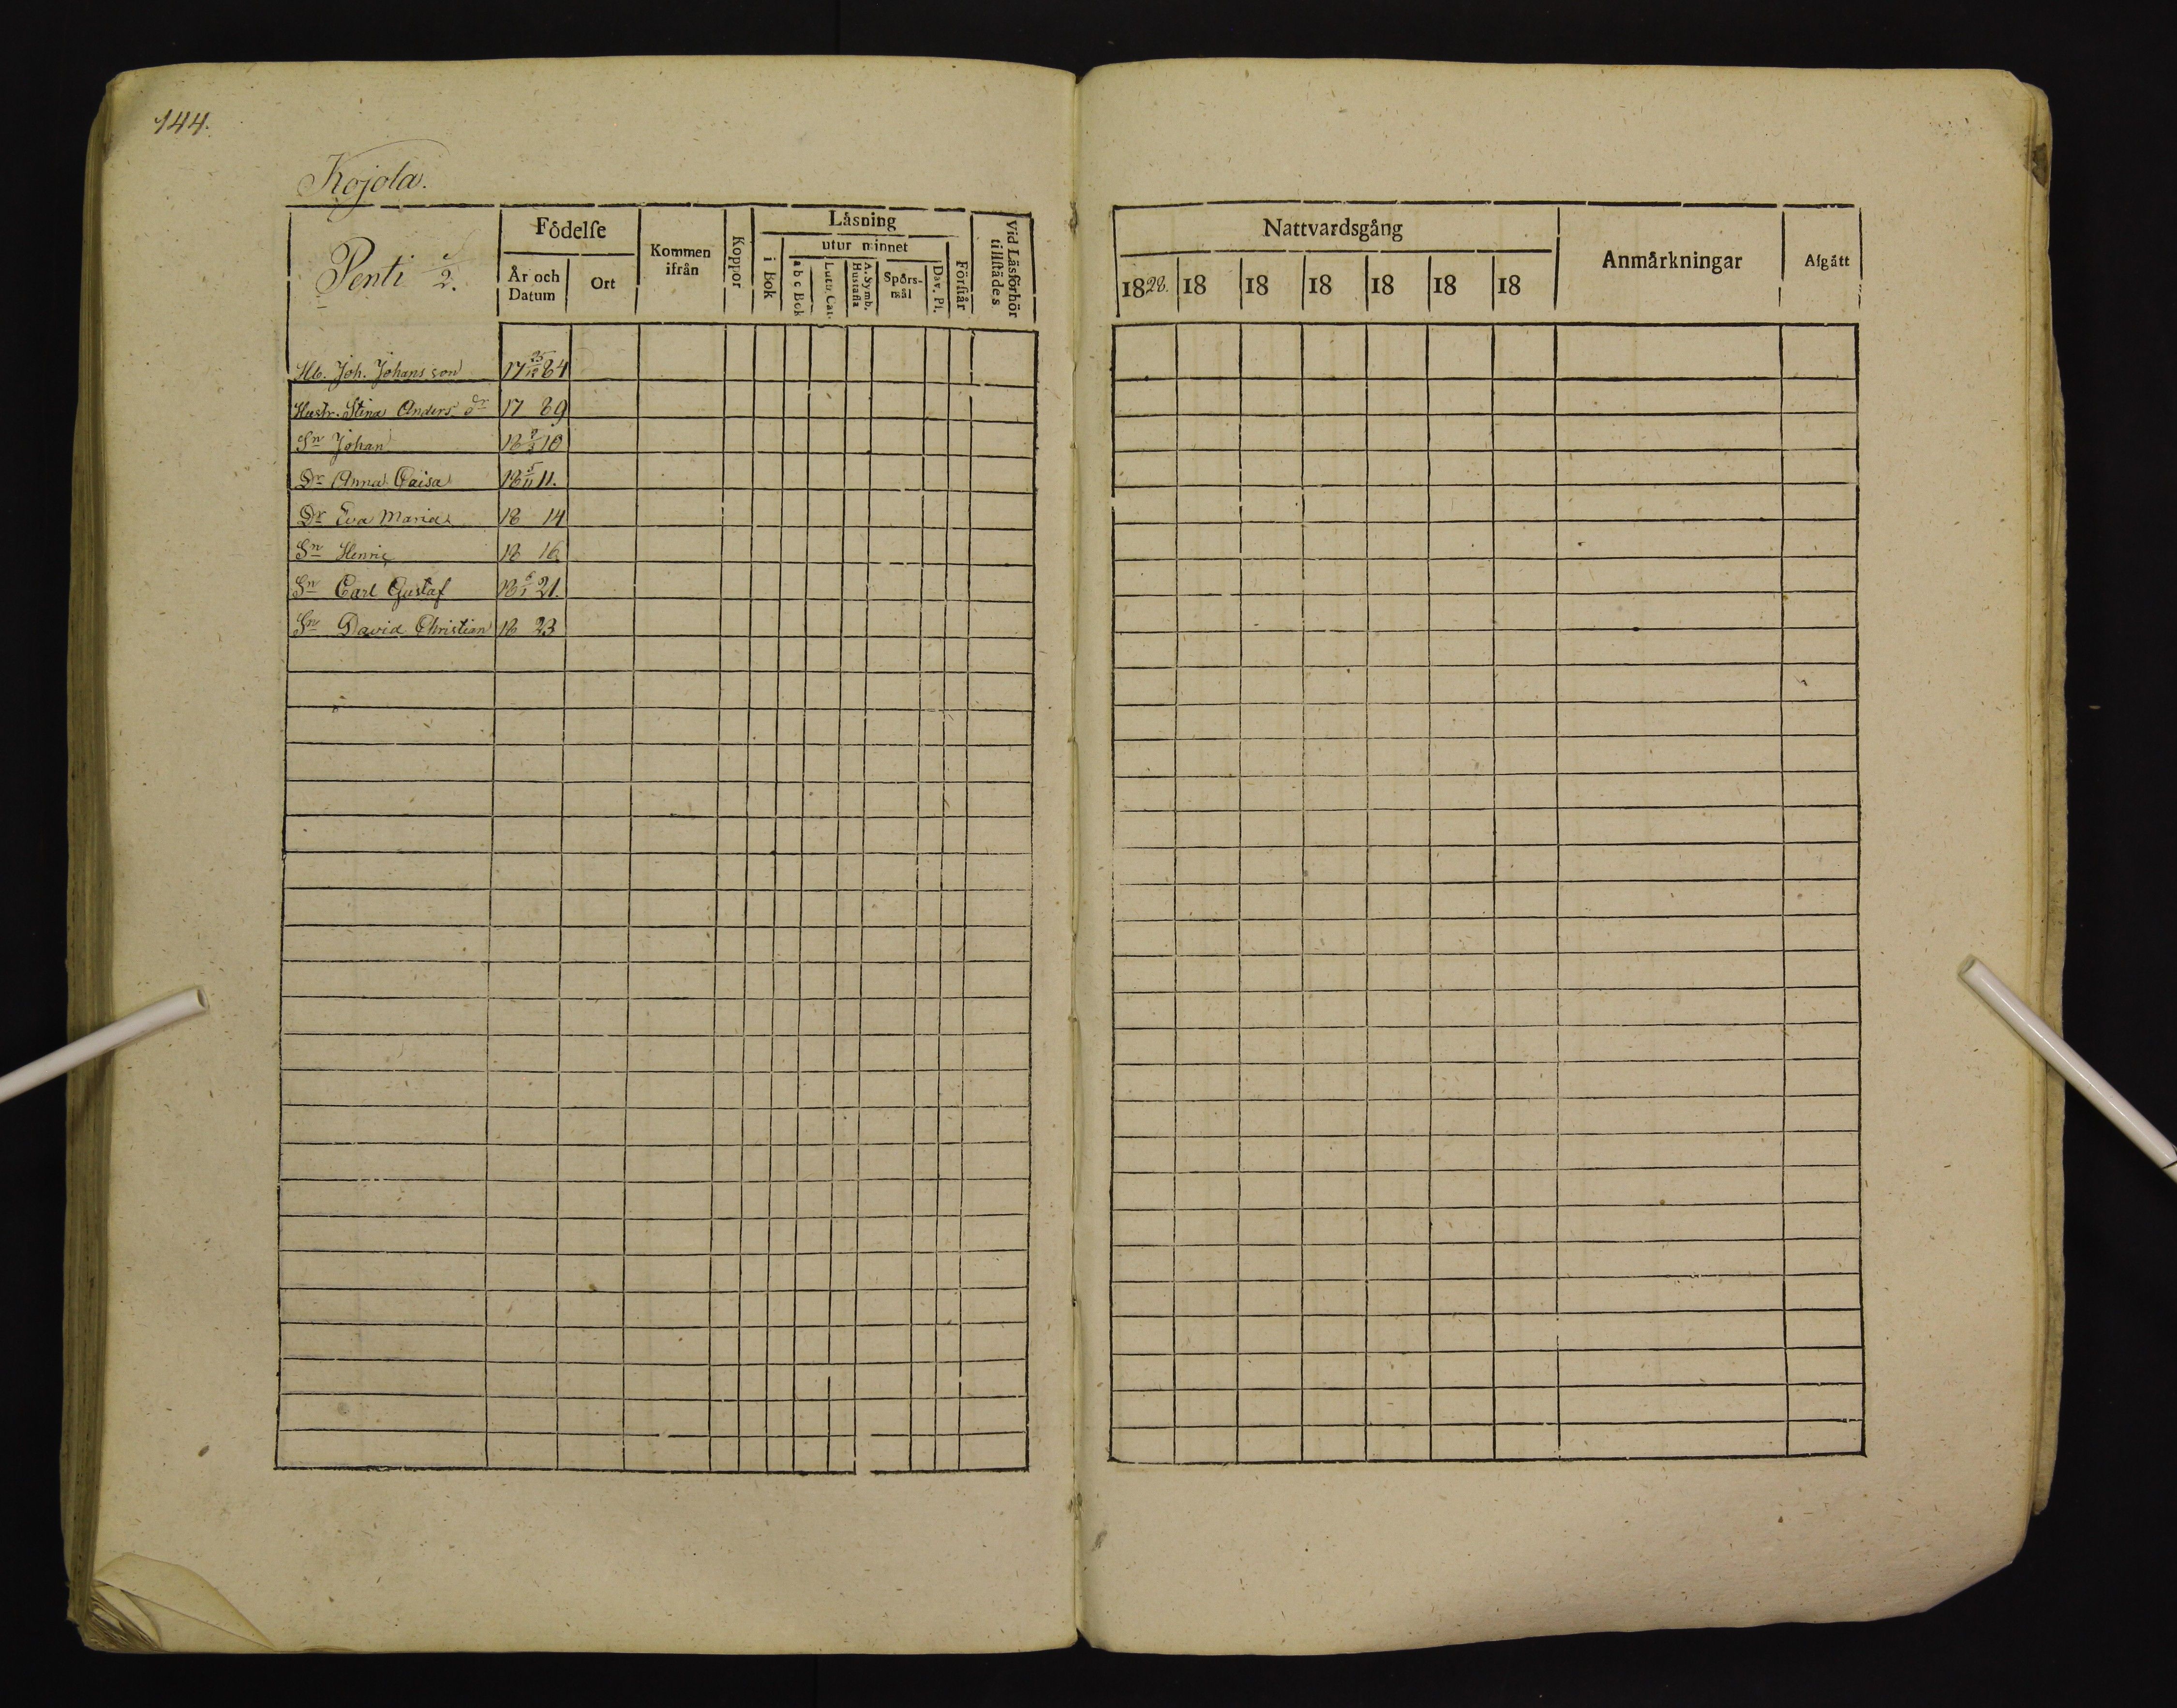 144.
Kojola.
Penti 1/2.
Födelse
År och Datum
Ort
Kommen ifrån
Koppor
Läsning
i Bok
utur minnet
a b c Bok
Luth. Cat.
A. Symb. Hustafla
Spörs-mål
Dav. Ps.
Förstår
Vid Läsförhör tillstädes
Nattvardsgång
1828. 18 18 18 18 18 18
Anmärkningar
Afgått
Hb. Joh. Johansson 17 25/12 84
Hustr. Stina Anders dr 17 89
Sn Johan 18 10
Dr Anna Caisa 18 5/11 11.
Dr Eva Maria 18 14
Sn Henric 18 16
Sn Carl Gustaf 18 21.
Sn David Christian 18 23